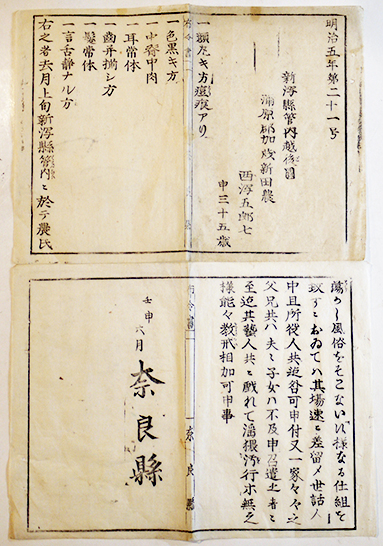 明治五年第二十一号
新潟縣管内越後国
蒲原郡加茂新田農
西海五郎七
申三十五歳
一頭左キ方瘡痕アリ
一色黒キ方
一中脊中肉
一耳常体
一歯并揃シ方
一鬚常体
一言舌静ナル方
右之者去月上旬新潟縣管内ニ於テ農民
蕩かし風俗をそこないれ様なる仕組を
致すニおゐてハ其場速ニ差留メ世話人
中且所役人共迄咎可申付又一家々々之
父兄共ハ夫々子女ハ不及申召遣之者ニ
至迄其藝人共と戯れて猥行ホ無之
様能々教戒相加可申事
壬申六月
奈良縣
奈良縣